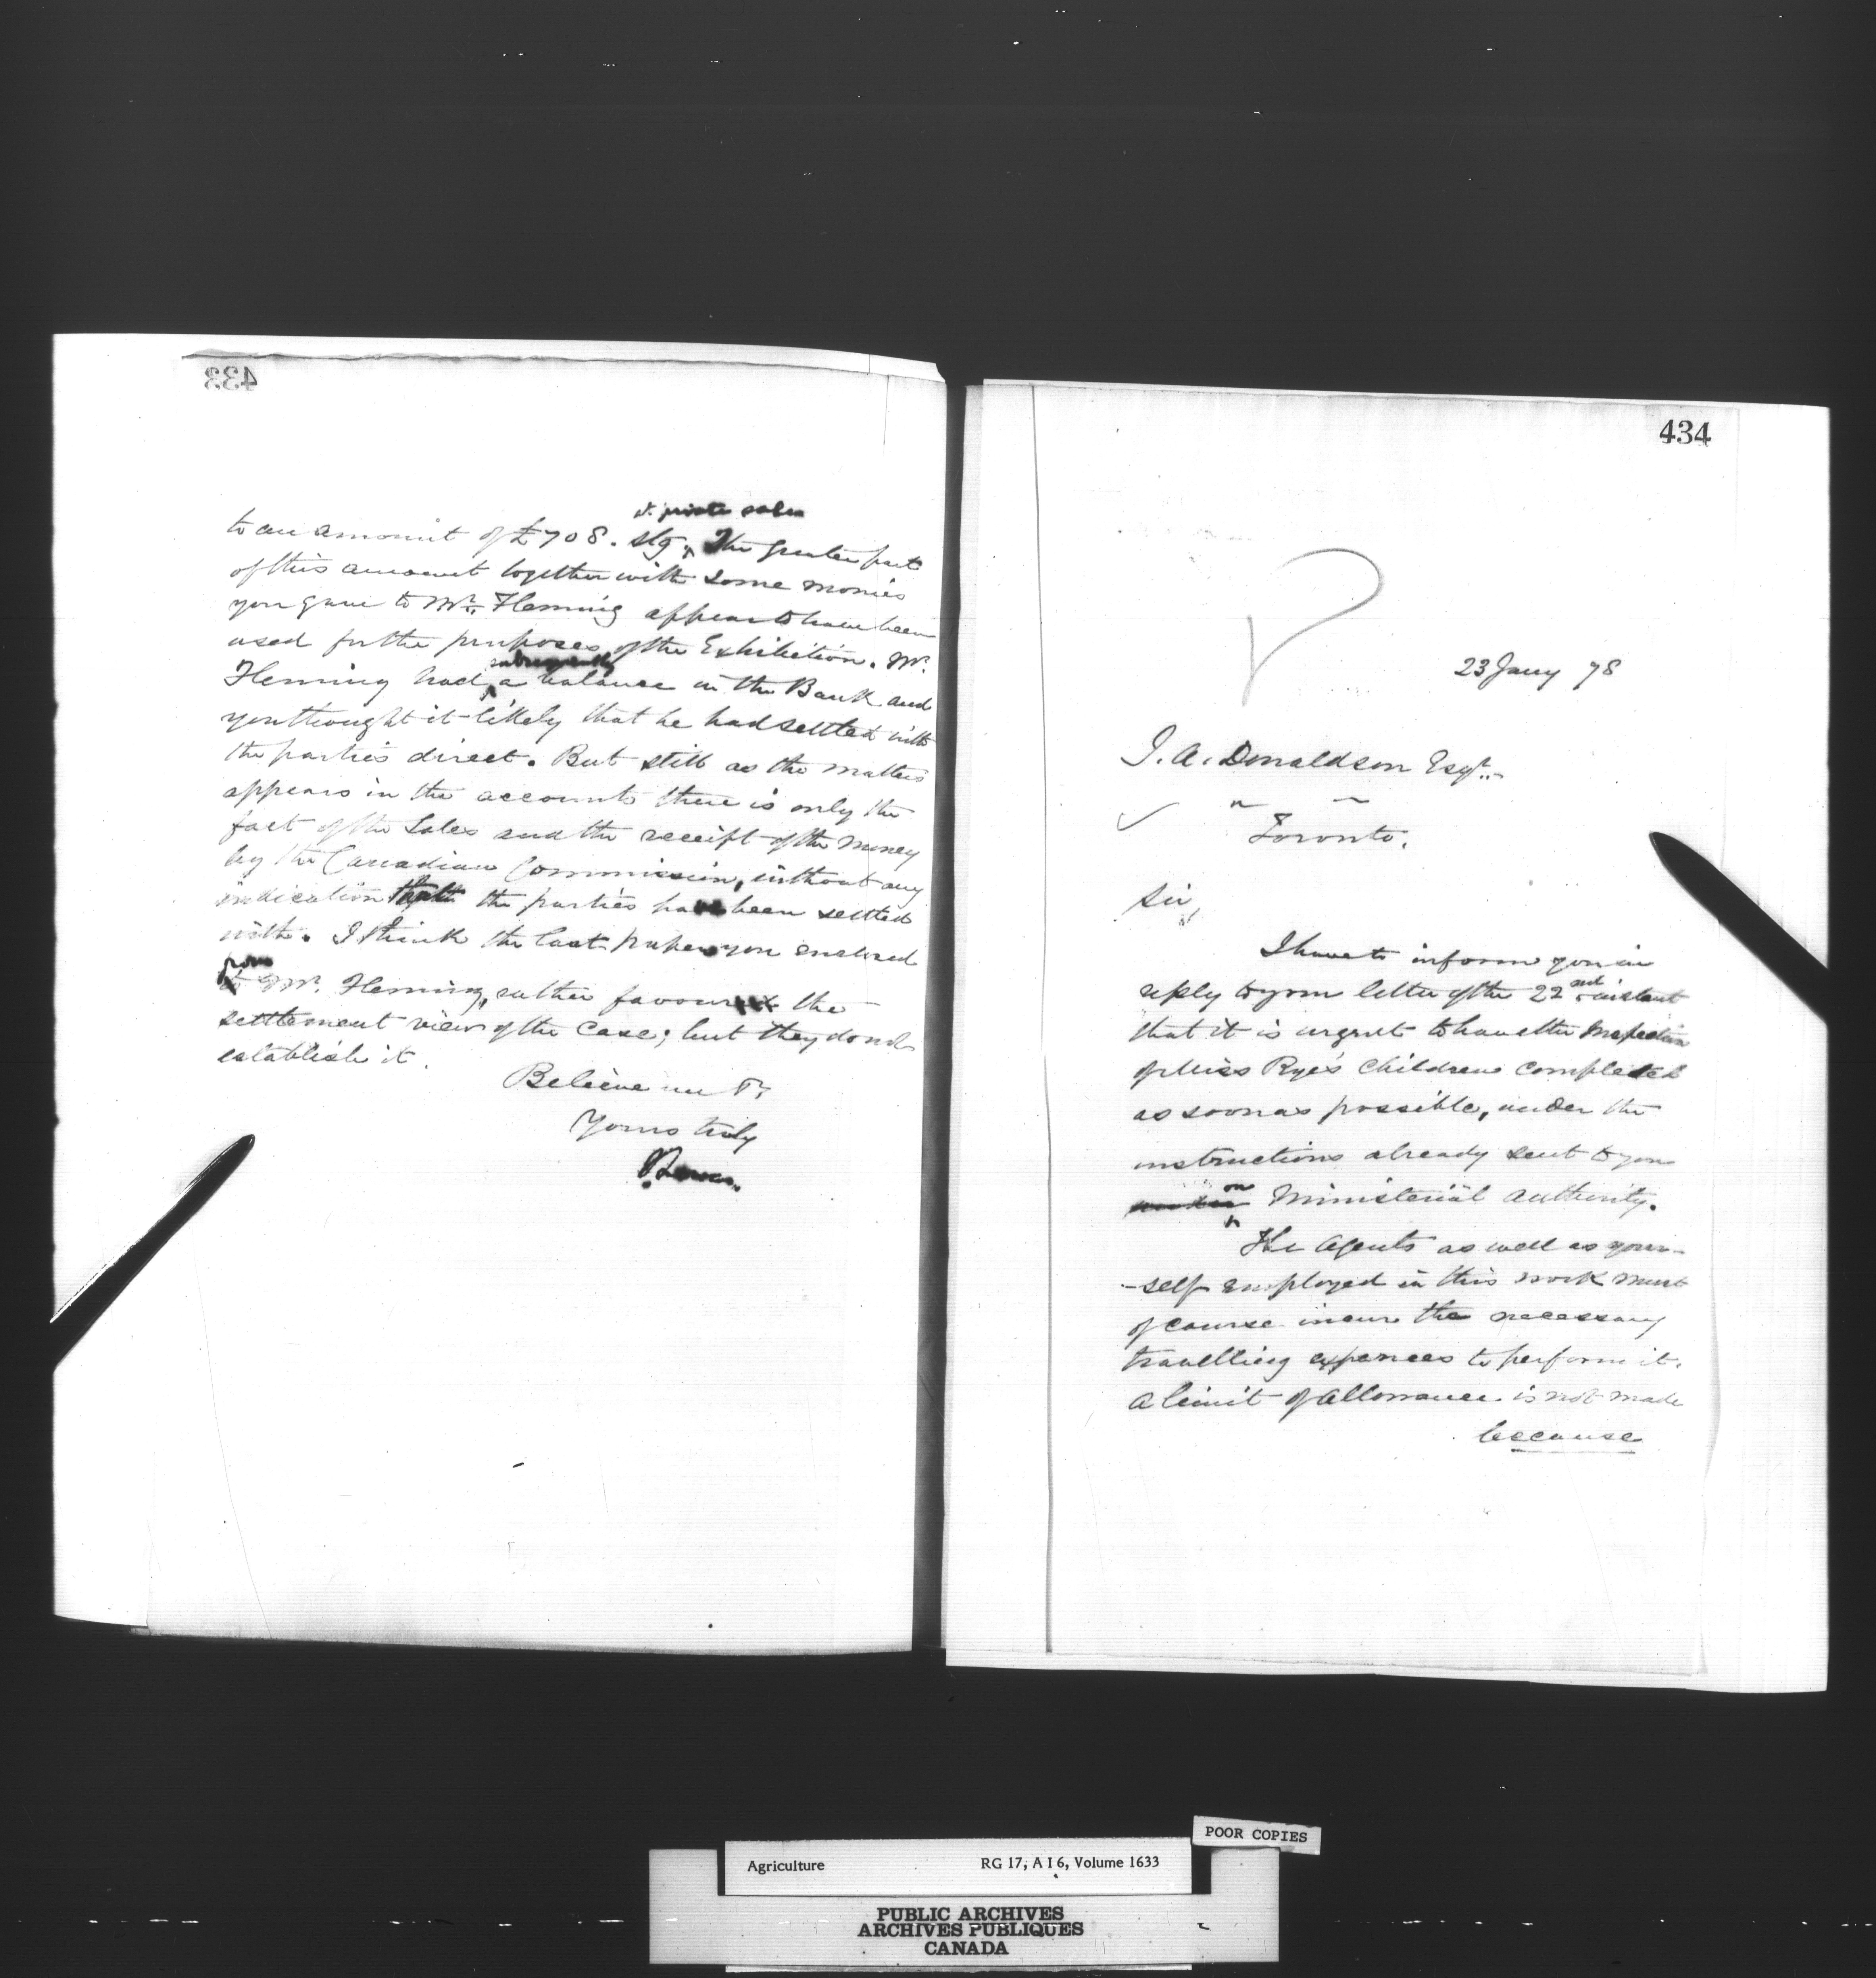 433
to an amount of £708. stg. The greater part
private sales
of this amount together with some monies
you gave to Mr. Fleming appear to have been
used for the purposes of the Exhibition. Mr.
subsequently
Fleming had a balance in the Bank and
you thought it likely that he had settled with
the parties direct. But still as the matter
appears in the accounts there is only the
fact of the Sales and the receipt of the money
by the Canadian Commission, without any
indication that the parties have been settled
with. I think the last papers you enclosed
from
to Mr. Fleming, rather favour the
settlement view of the Case; but they do not
establish it.
Believe me
Yours truly
J. Lowe.
434
23 Jany 78
J. A. Donaldson Esqr.
Toronto.
Sir,
I have to inform you in
reply to your letter of the 22nd instant
that it is urgent to have the Inspection
of Miss Rye's Children completed
as soon as possible, under the
instructions already sent to you
on
under Ministerial authority.
The Agents as well as your-
-self employed in this work must
of course incur the necessary
travelling expences to perform it.
A limit of allowance is not made
because
POOR COPIES
Agriculture RG 17, A I 6, Volume 1633
PUBLIC ARCHIVES
ARCHIVES PUBLIQUES
CANADA